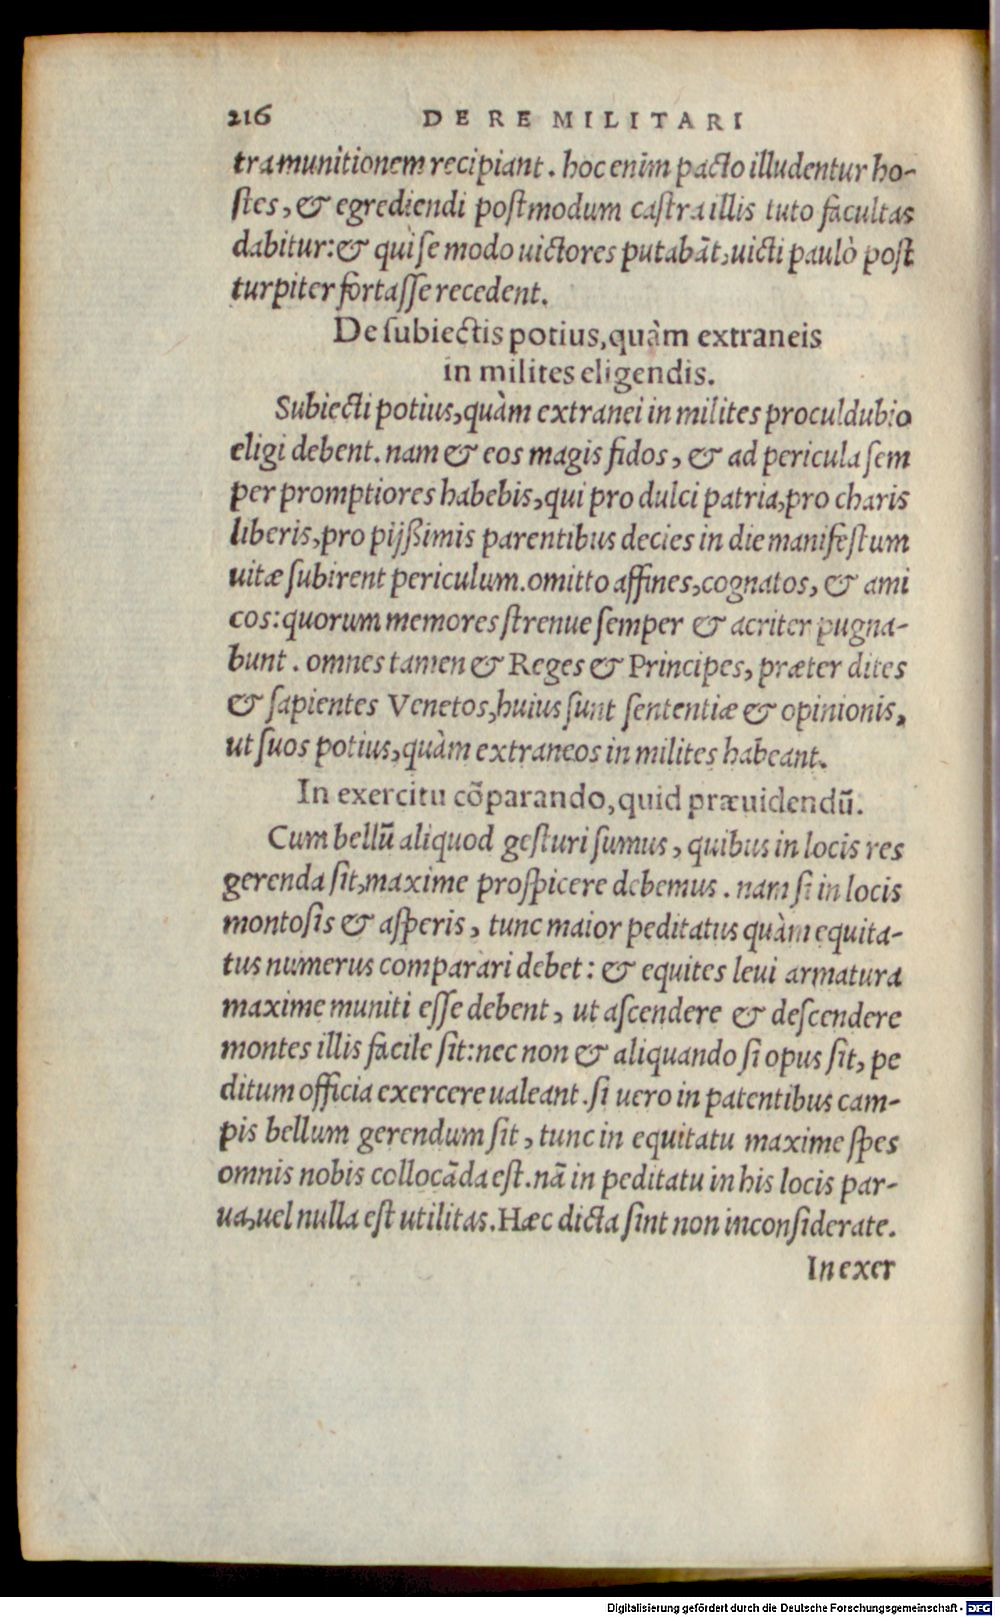 216 DE RE MILITARI
tra munitionem recipiant. hoc enim pacto illudentur ho-
stes, & egrediendi postmodum castra illis tuto facultas
dabitur: & qui se modo uictores putabāt, uicti paulò post
turpiter fortasse recedent.
De subiectis potius, quàm extraneis
in milites eligendis.
Subiecti potius, quàm extranei in milites proculdubio
eligi debent. nam & eos magis fidos, & ad pericula sem
per promptiores habebis, qui pro dulci patria, pro charis
liberis, pro pijßimis parentibus decies in die manifestum
uitæ subirent periculum. omitto affines, cognatos, & ami
cos: quorum memores strenue semper & acriter pugna-
bunt. omnes tamen & Reges & Principes, præter dites
& sapientes Venetos, huius sunt sententiæ & opinionis,
ut suos potius, quàm extraneos in milites habeant.
In exercitu cōparando, quid præuidendū.
Cum bellū aliquod gesturi sumus, quibus in locis res
gerenda sit, maxime prospicere debemus. nam si in locis
montosis & asperis, tunc maior peditatus quàm equita-
tus numerus comparari debet: & equites leui armatura
maxime muniti esse debent, ut ascendere & descendere
montes illis facile sit: nec non & aliquando si opus sit, pe
ditum officia exercere ualeant. si uero in patentibus cam-
pis bellum gerendum sit, tunc in equitatu maxime spes
omnis nobis collocāda est. nā in peditatu in his locis par-
ua, uel nulla est utilitas. Hæc dicta sint non inconsiderate.
In exer
Digitalisierung gefördert durch die Deutsche Forschungsgemeinschaft - DFG